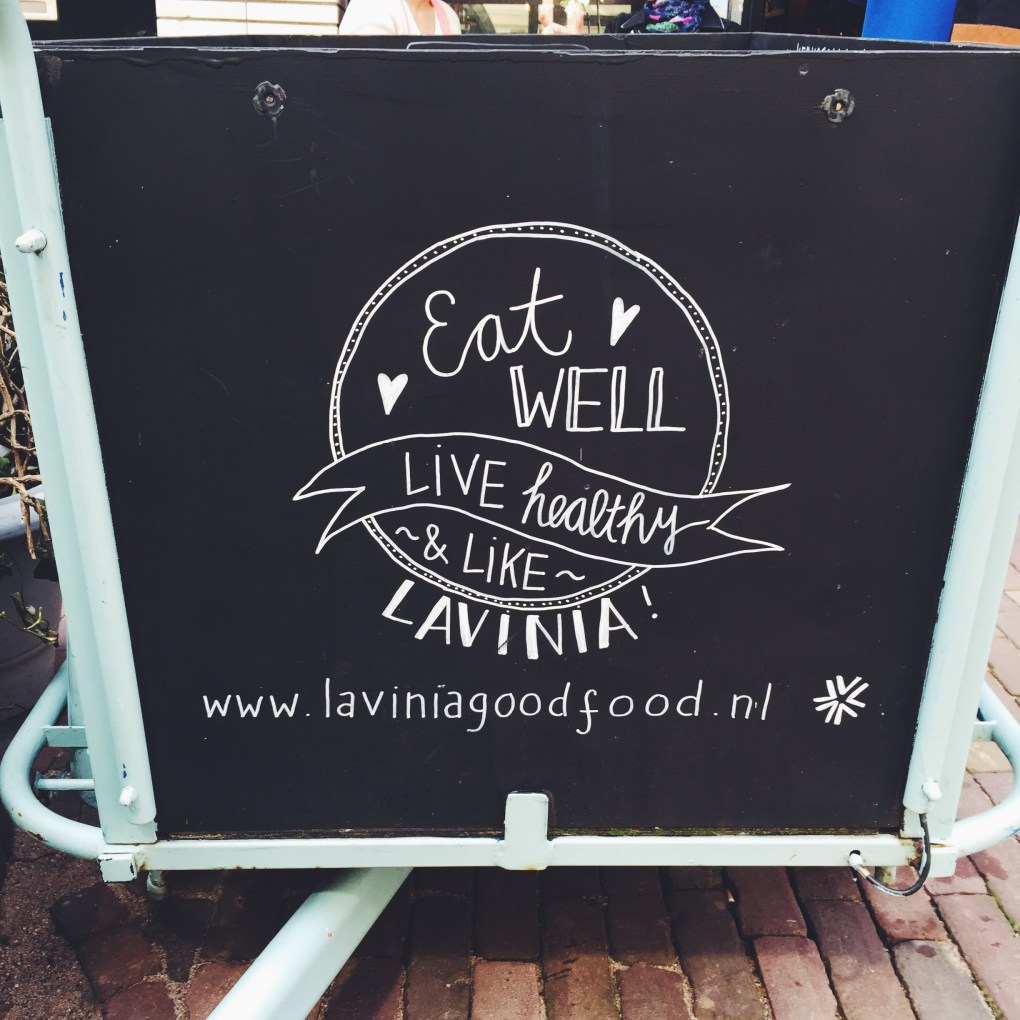 Eat
WELL
LiVE healthy
~& LiKE~
LAViNIA!
www.laviniagoodfood.nl